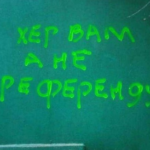 ХЕР ВАМ
А НЕ
РЕФЕРЕНДУ